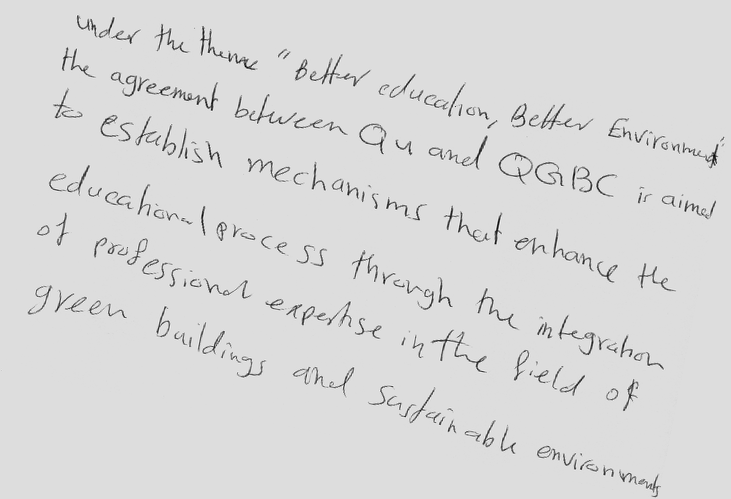 under the theme "Better education, Better Environment"
the agreement between Qu and QGBC is aimed
to establish mechanisms that enhance the
educational process through the integration
of professional expertise in the field of
green buildings and sustainable environments